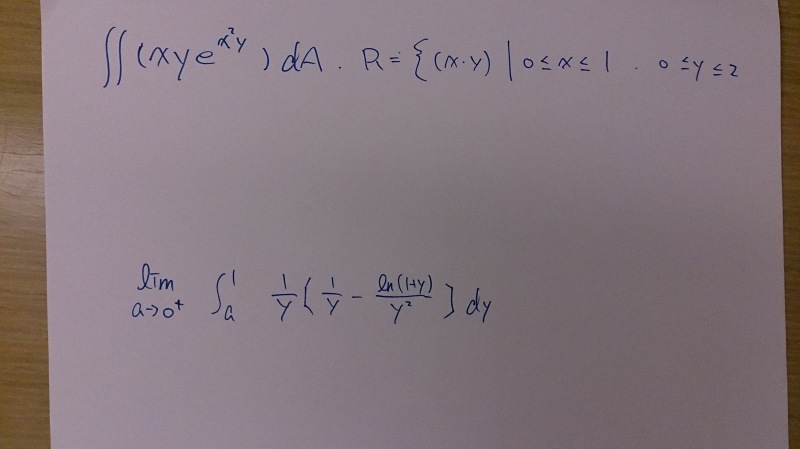 ∬(xye^{x²y}) dA . R = {(x·y) | 0 ≤ x ≤ 1 . 0 ≤ y ≤ 2
lim_{a→0⁺} ∫_a^1 1/y [ 1/y − ln(1+y)/y² ] dy